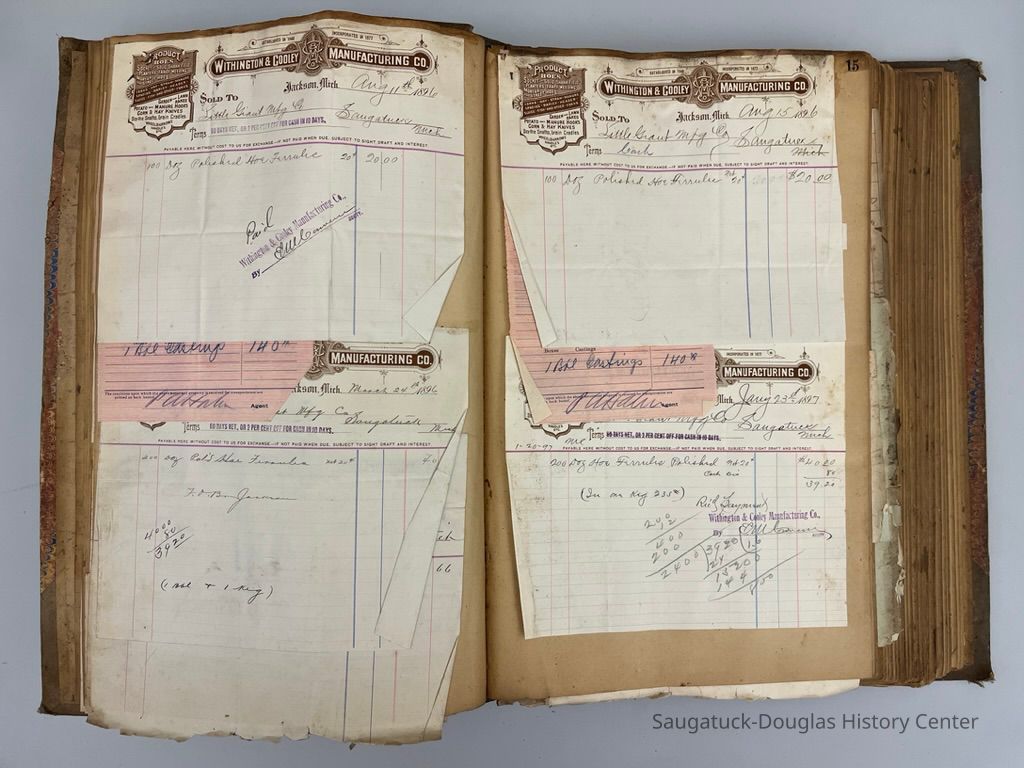 PRODUCT
HOES
GARDEN AND LAWN RAKES
POTATO AND MANURE HOOKS
CORN & HAY KNIVES
Scythe Snaths, Grain Cradles
ESTABLISHED IN INCORPORATED IN 1877
WITHINGTON & COOLEY MANUFACTURING CO.
Jackson, Mich. Aug 11th 1896
SOLD TO Little Giant Mfg Co
Saugatuck Mich
Terms 60 DAYS NET, OR 2 PER CENT OFF FOR CASH IN 10 DAYS.
PAYABLE HERE WITHOUT COST TO US FOR EXCHANGE—IF NOT PAID WHEN DUE, SUBJECT TO SIGHT DRAFT AND INTEREST.
100 Doz Polished Hoe Ferrule 20¢ 20.00
Paid
Withington & Cooley Manufacturing Co.,
By
1 Bbl Castings 140
Agent
MANUFACTURING CO.
Jackson, Mich. March 24th 1896
Mfg Co
Saugatuck Mich
60 DAYS NET, OR 2 PER CENT OFF FOR CASH IN 10 DAYS.
PAYABLE HERE WITHOUT COST TO US FOR EXCHANGE—IF NOT PAID WHEN DUE, SUBJECT TO SIGHT DRAFT AND INTEREST.
200 Doz Pol'd Hoe Ferrules 20¢ 40
F.O.B. Jackson
4000
80
3920
(1 Bbl & 1 Keg)
66
15
PRODUCT
HOES
GARDEN AND LAWN RAKES
POTATO AND MANURE HOOKS
CORN & HAY KNIVES
Scythe Snaths, Grain Cradles
ESTABLISHED IN INCORPORATED IN 1877
WITHINGTON & COOLEY MANUFACTURING CO.
Jackson, Mich. Aug 15 1896
SOLD TO Little Giant Mfg Co
Saugatuck Mich
Terms Cash
PAYABLE HERE WITHOUT COST TO US FOR EXCHANGE—IF NOT PAID WHEN DUE, SUBJECT TO SIGHT DRAFT AND INTEREST.
100 Doz Polished Hoe Ferrule 20¢ $20.00
Boxes Castings
1 Bbl Castings 140
Agent
INCORPORATED IN 1877
MANUFACTURING CO.
Mich. Jany 23rd 1897
Giant Mfg Co Saugatuck
Mich
Terms 60 DAYS NET, OR 2 PER CENT OFF FOR CASH IN 10 DAYS.
1-20-97
PAYABLE HERE WITHOUT COST TO US FOR EXCHANGE—IF NOT PAID WHEN DUE, SUBJECT TO SIGHT DRAFT AND INTEREST.
200 Doz Hoe Ferrule Polished 20¢ $40.00
Cash Dis 80
39.20
(In on Keg 235#)
Rec'd Payment
Withington & Cooley Manufacturing Co.,
By
200
400
200
2400
Saugatuck-Douglas History Center